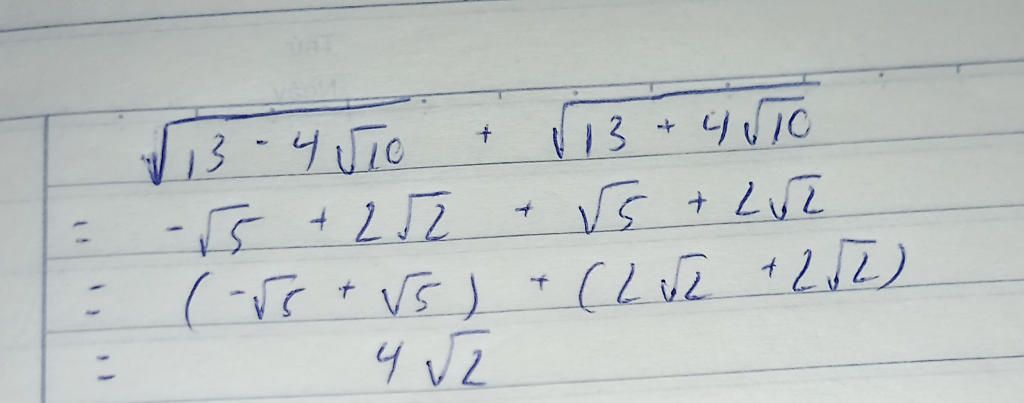 √(13 - 4√10) + √(13 + 4√10)
= -√5 + 2√2 + √5 + 2√2
= (-√5 + √5) + (2√2 + 2√2)
= 4√2